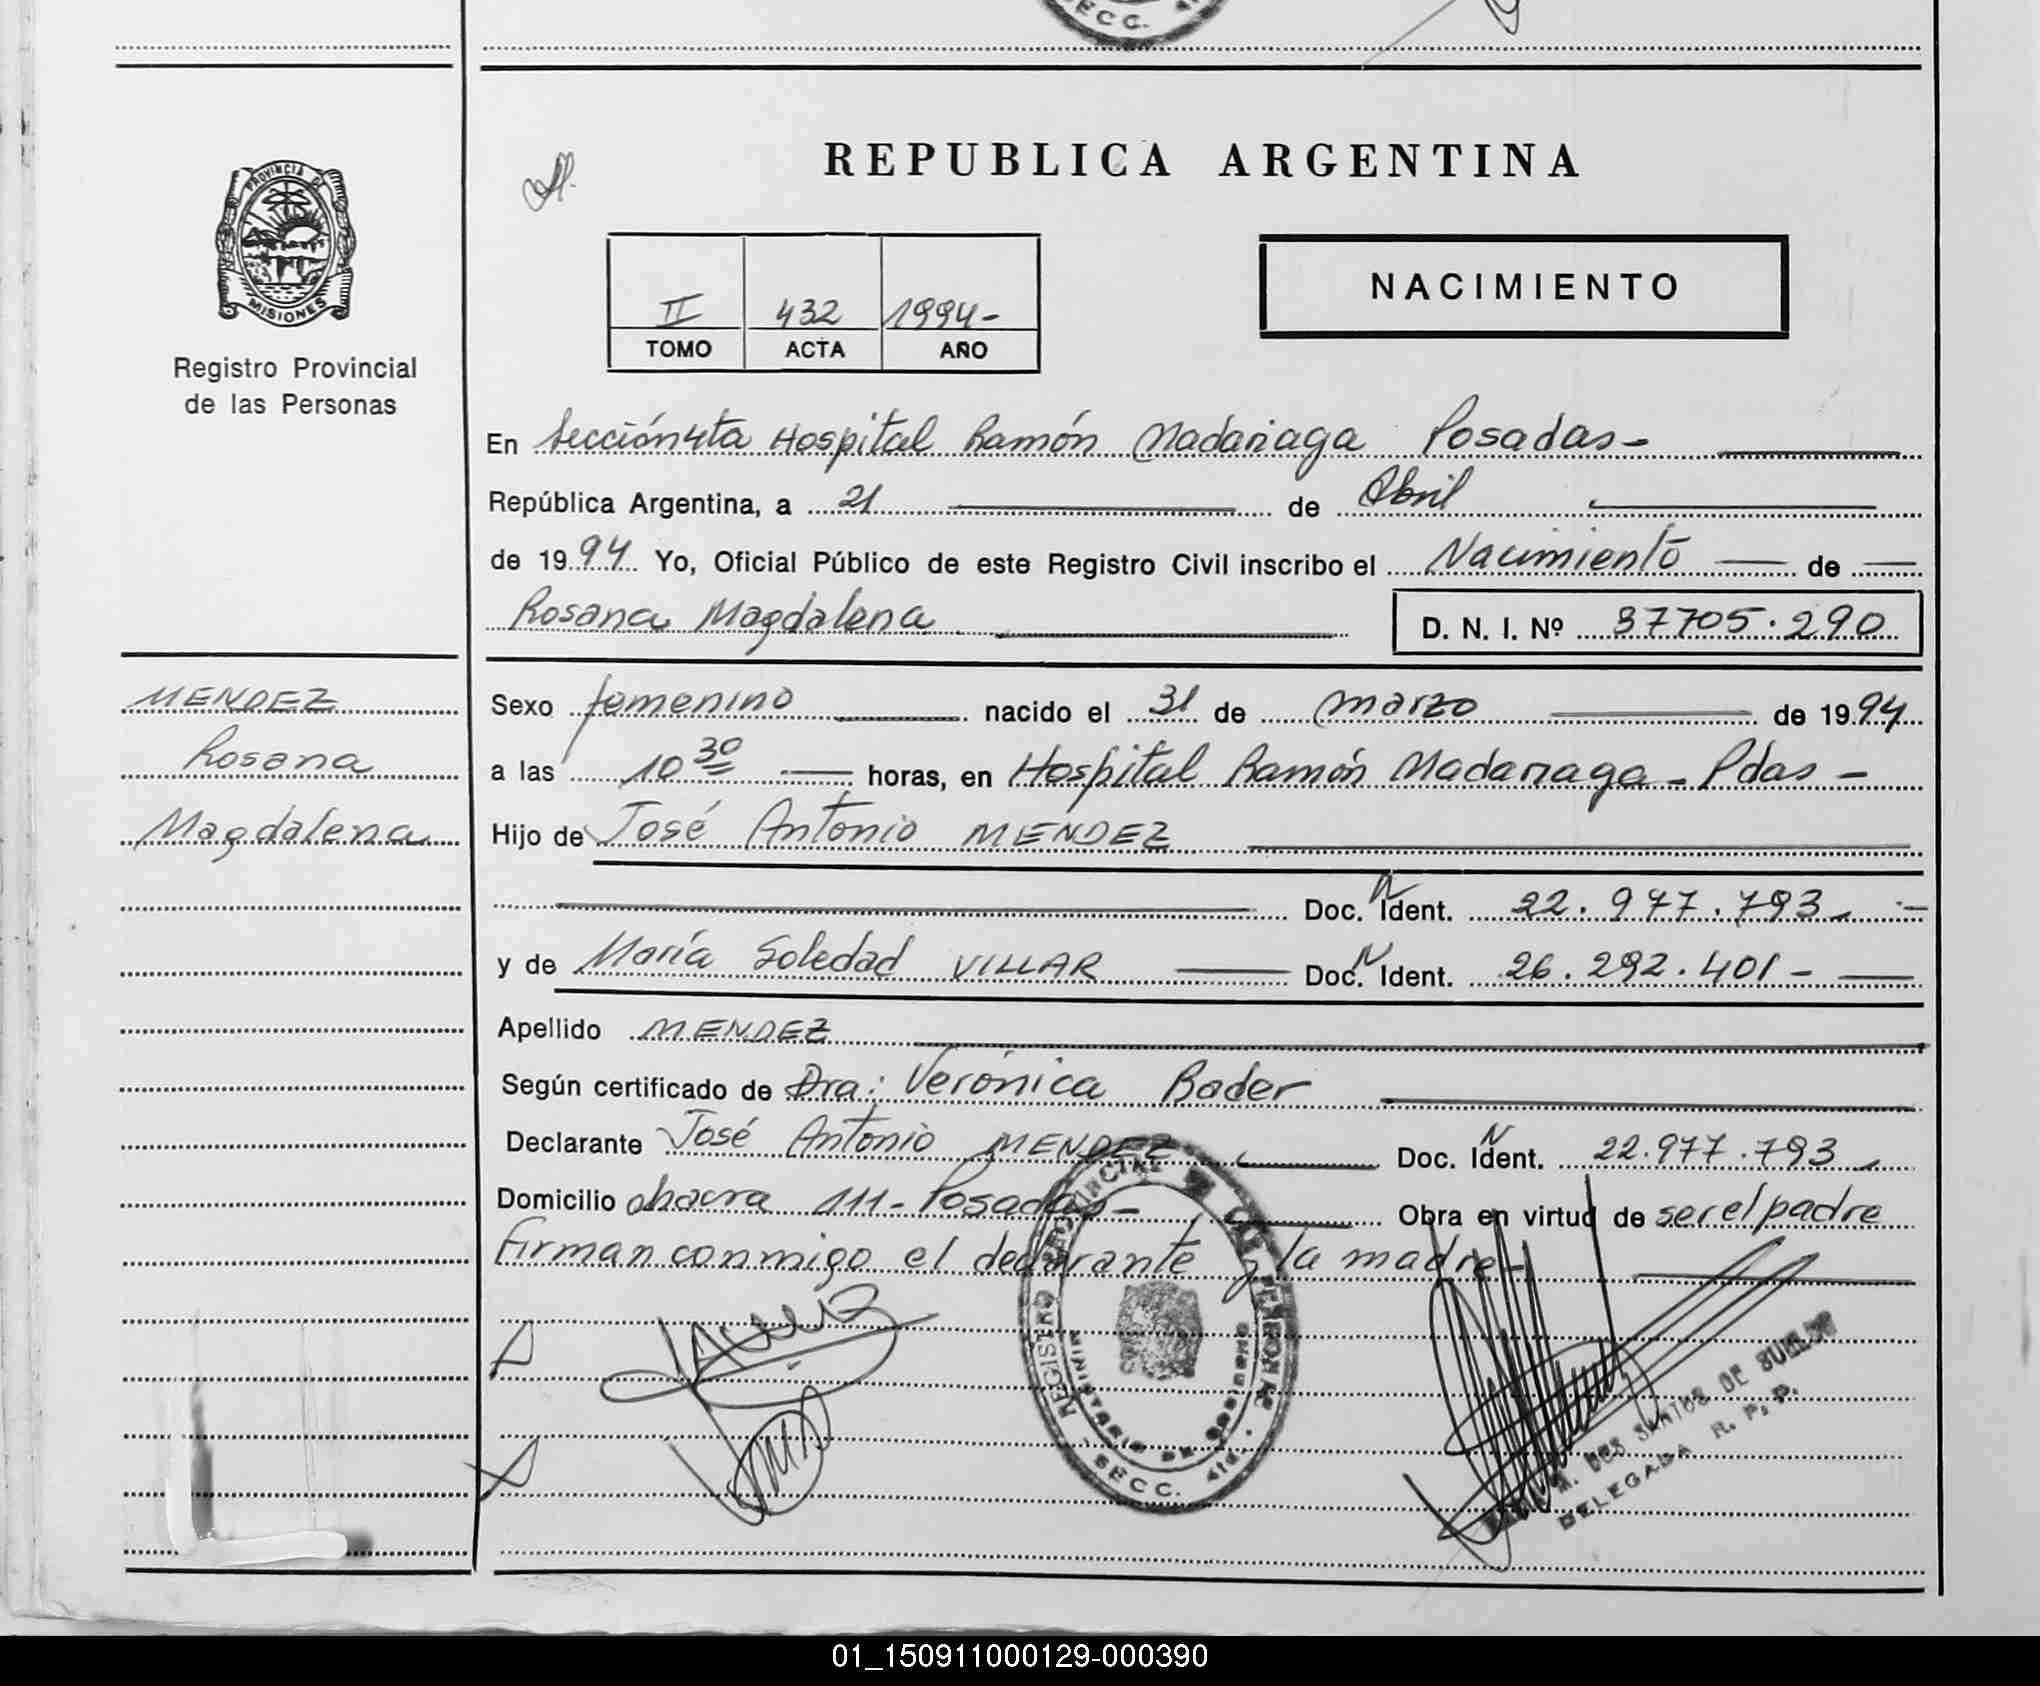 SECC. 4ta.
REPUBLICA ARGENTINA
PROVINCIA DE
MISIONES
Registro Provincial
de las Personas
II 432 1994-
TOMO ACTA AÑO
NACIMIENTO
En Sección 4ta Hospital Ramón Madariaga Posadas-
República Argentina, a 21 de Abril
de 1994 Yo, Oficial Público de este Registro Civil inscribo el Nacimiento de
Rosana Magdalena D. N. I. Nº 37705.290
MENDEZ
Rosana
Magdalena
Sexo femenino nacido el 31 de marzo de 1994
a las 10 30 horas, en Hospital Ramón Madariaga - Pdas -
Hijo de José Antonio MENDEZ
Doc. N Ident. 22.977.793-
y de María Soledad VILLAR Doc. N Ident. 26.292.401-
Apellido MENDEZ
Según certificado de Dra: Verónica Bader
Declarante José Antonio MENDEZ Doc. N Ident. 22.977.793-
Domicilio chacra 111- Posadas- Obra en virtud de ser el padre
Firman conmigo el declarante y la madre-
REGISTRO PROVINCIAL DE LAS PERSONAS
MINISTERIO DE GOBIERNO
SECC. 4ta.
M. DOS SANTOS DE
DELEGADA R. P. P.
01_150911000129-000390